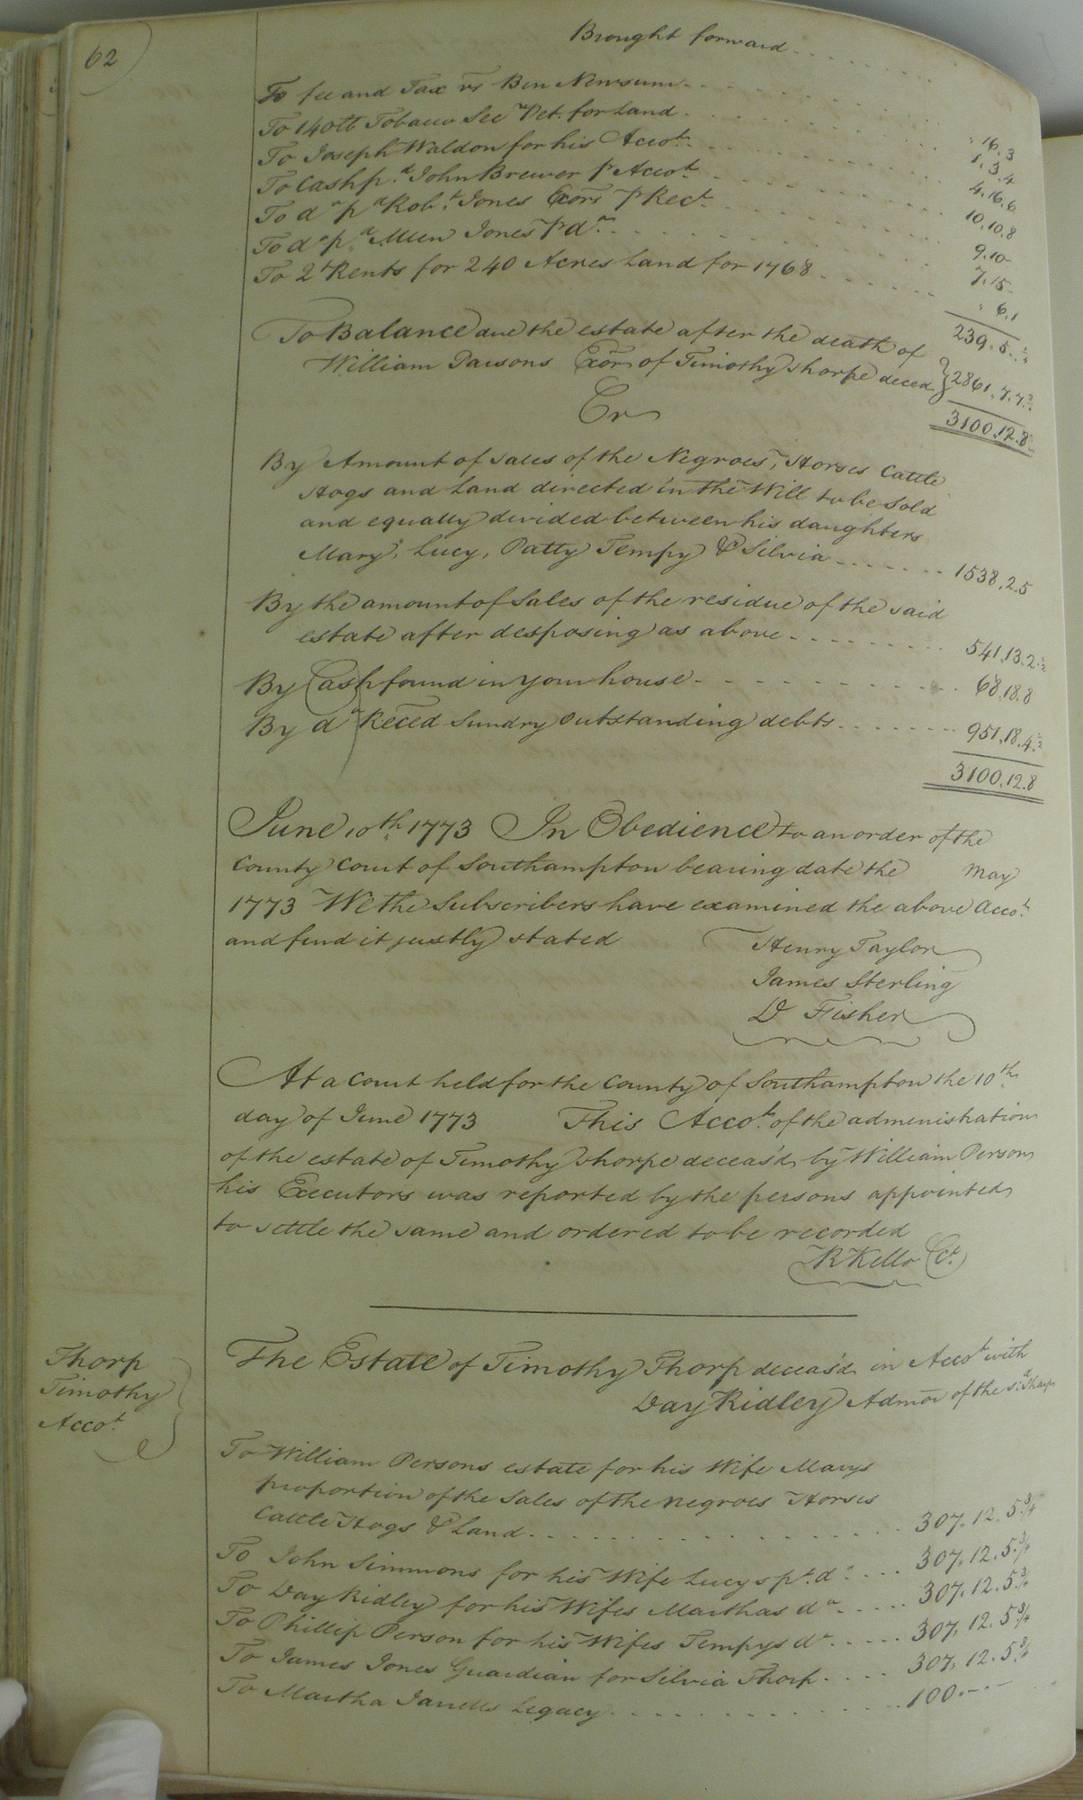 62
Brought forward
To fee and Tax vs Ben Newsum
To 140 lb Tobacco Secy. Pet. for Land . 16. 3
To Joseph Waldon for his Accot. 1. 3. 4
To Cash pd. John Brewer pr Accot 4. 16. 6
To do pd Robt. Jones Exors pr Rect. 10. 10. 8
To do pd. Allen Jones pr do. 9. 10
To 2t Rents for 240 Acres Land for 1768 7. 15
. 6. 1
239. 5.
To Balance due the estate after the death of
William Parsons Exor of Timothy Thorpe deced } 2861. 7. 7 1/2
3100. 12. 8
Cr
By Amount of sales of the Negroes, Horses Cattle
Hogs and Land directed in the Will to be Sold
and equally divided between his daughters
Mary, Lucy, Patty Tempy & Silvia 1538. 2. 5
By the amount of Sales of the residue of the said
estate after desposing as above 541. 13. 2 1/2
By Cash found in your house 68. 18. 8
By do Reced Sundry outstanding debts 951. 18. 4 1/2
3100. 12. 8
June 10th 1773 In Obedience to an order of the
County Court of Southampton bearing date the May
1773 We the Subscribers have examined the above Accot.
and find it justly stated Henry Taylor
James Sterling
D Fisher
At a Court held for the County of Southampton the 10th
day of June 1773 This Accot. of the administration
of the estate of Timothy Thorpe deceas'd by William Person
his Executors was reported by the persons appointed
to settle the same and ordered to be recorded
R Kello Ct.
Thorp
Timothy
Accot.
The Estate of Timothy Thorp deceas'd in Accot with
Day Ridley Admor of the sd. Thorp
To William Persons estate for his Wife Marys
proportion of the Sales of the negroes Horses
Cattle Hogs & Land 307. 12. 5 3/4
To John Simmons for his Wife Lucys pt. do 307. 12. 5 3/4
To Day Ridley for his Wifes Marthas do 307. 12. 5 3/4
To Phillip Person for his Wifes Tempys do 307. 12. 5 3/4
To James Jones Guardian for Silvia Thorp 307. 12. 5 3/4
To Martha Legacy 100. - . -